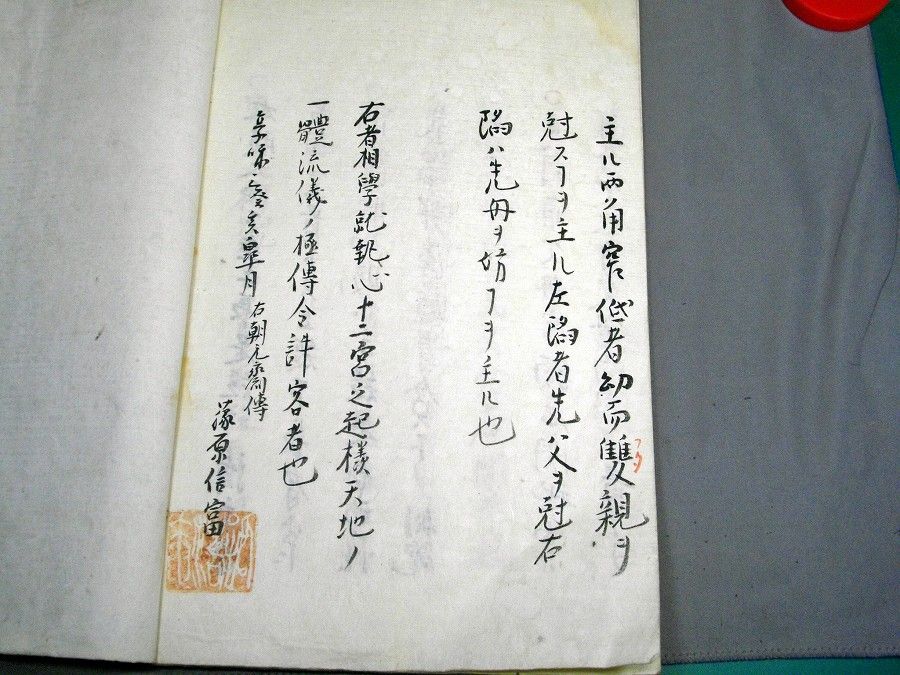 主ル両角窄低者幼而雙親ヲ
尅スヿヲ主ル左陷者先父ヲ尅右
陷ハ先母ヲ妨ヿヲ主ル也
右者相學就執心十二宮之起様天地ノ
一體流儀ノ極傳令許容者也
享和三癸亥皐月 右朝元齋傳
藤原信富